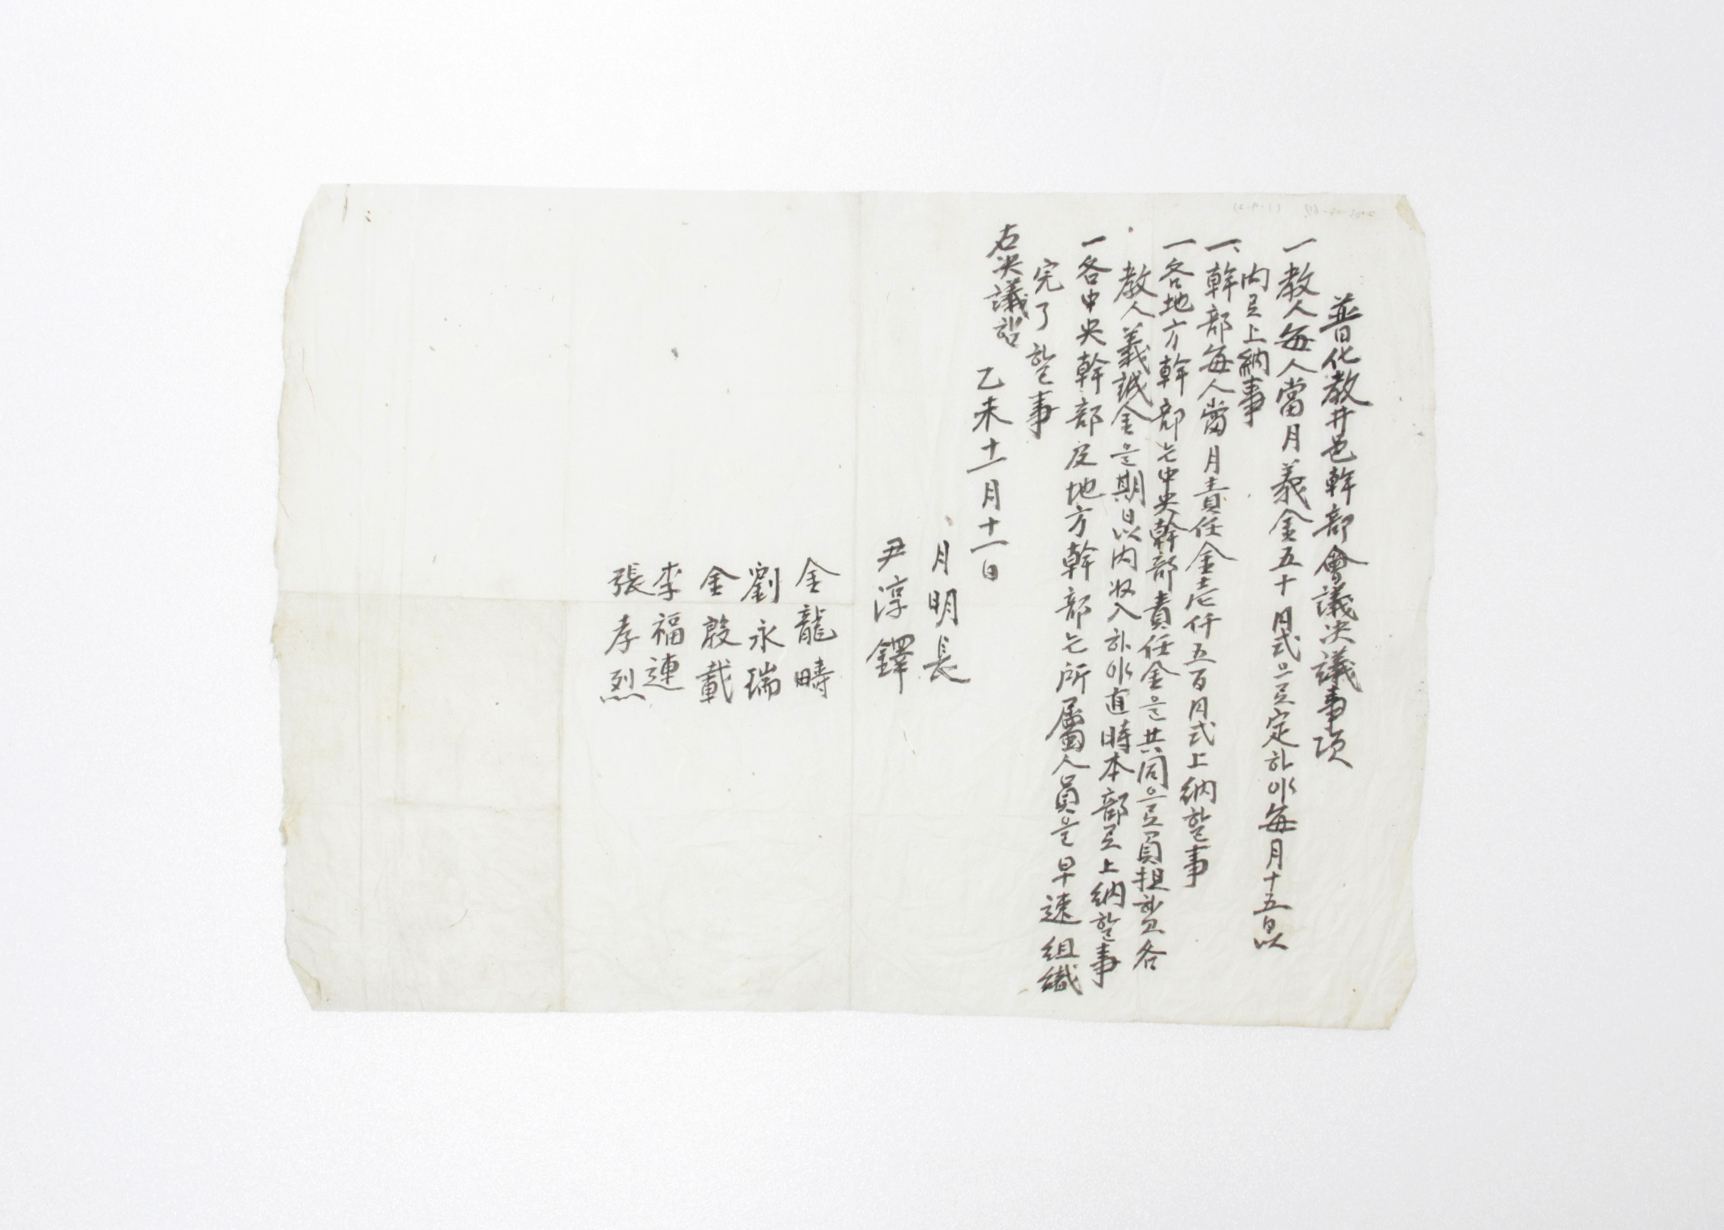 普化教井邑幹部會議決議事項
一 教人每人當月義金五十月式으로定하야每月十五日以
內로上納事
一 幹部每人當月責任金壱仟五百月式上納할事
一 各地方幹部는中央幹部責任金을共同으로負担하고各
教人義誠金을期日以內收入하야直時本部로上納할事
一 各中央幹部及地方幹部는所屬人員을早速組織
完了할事
右決議함
乙未十一月十一日
月明長
尹淳鐸
金龍疇
劉永瑞
金殷載
李福連
張孝烈